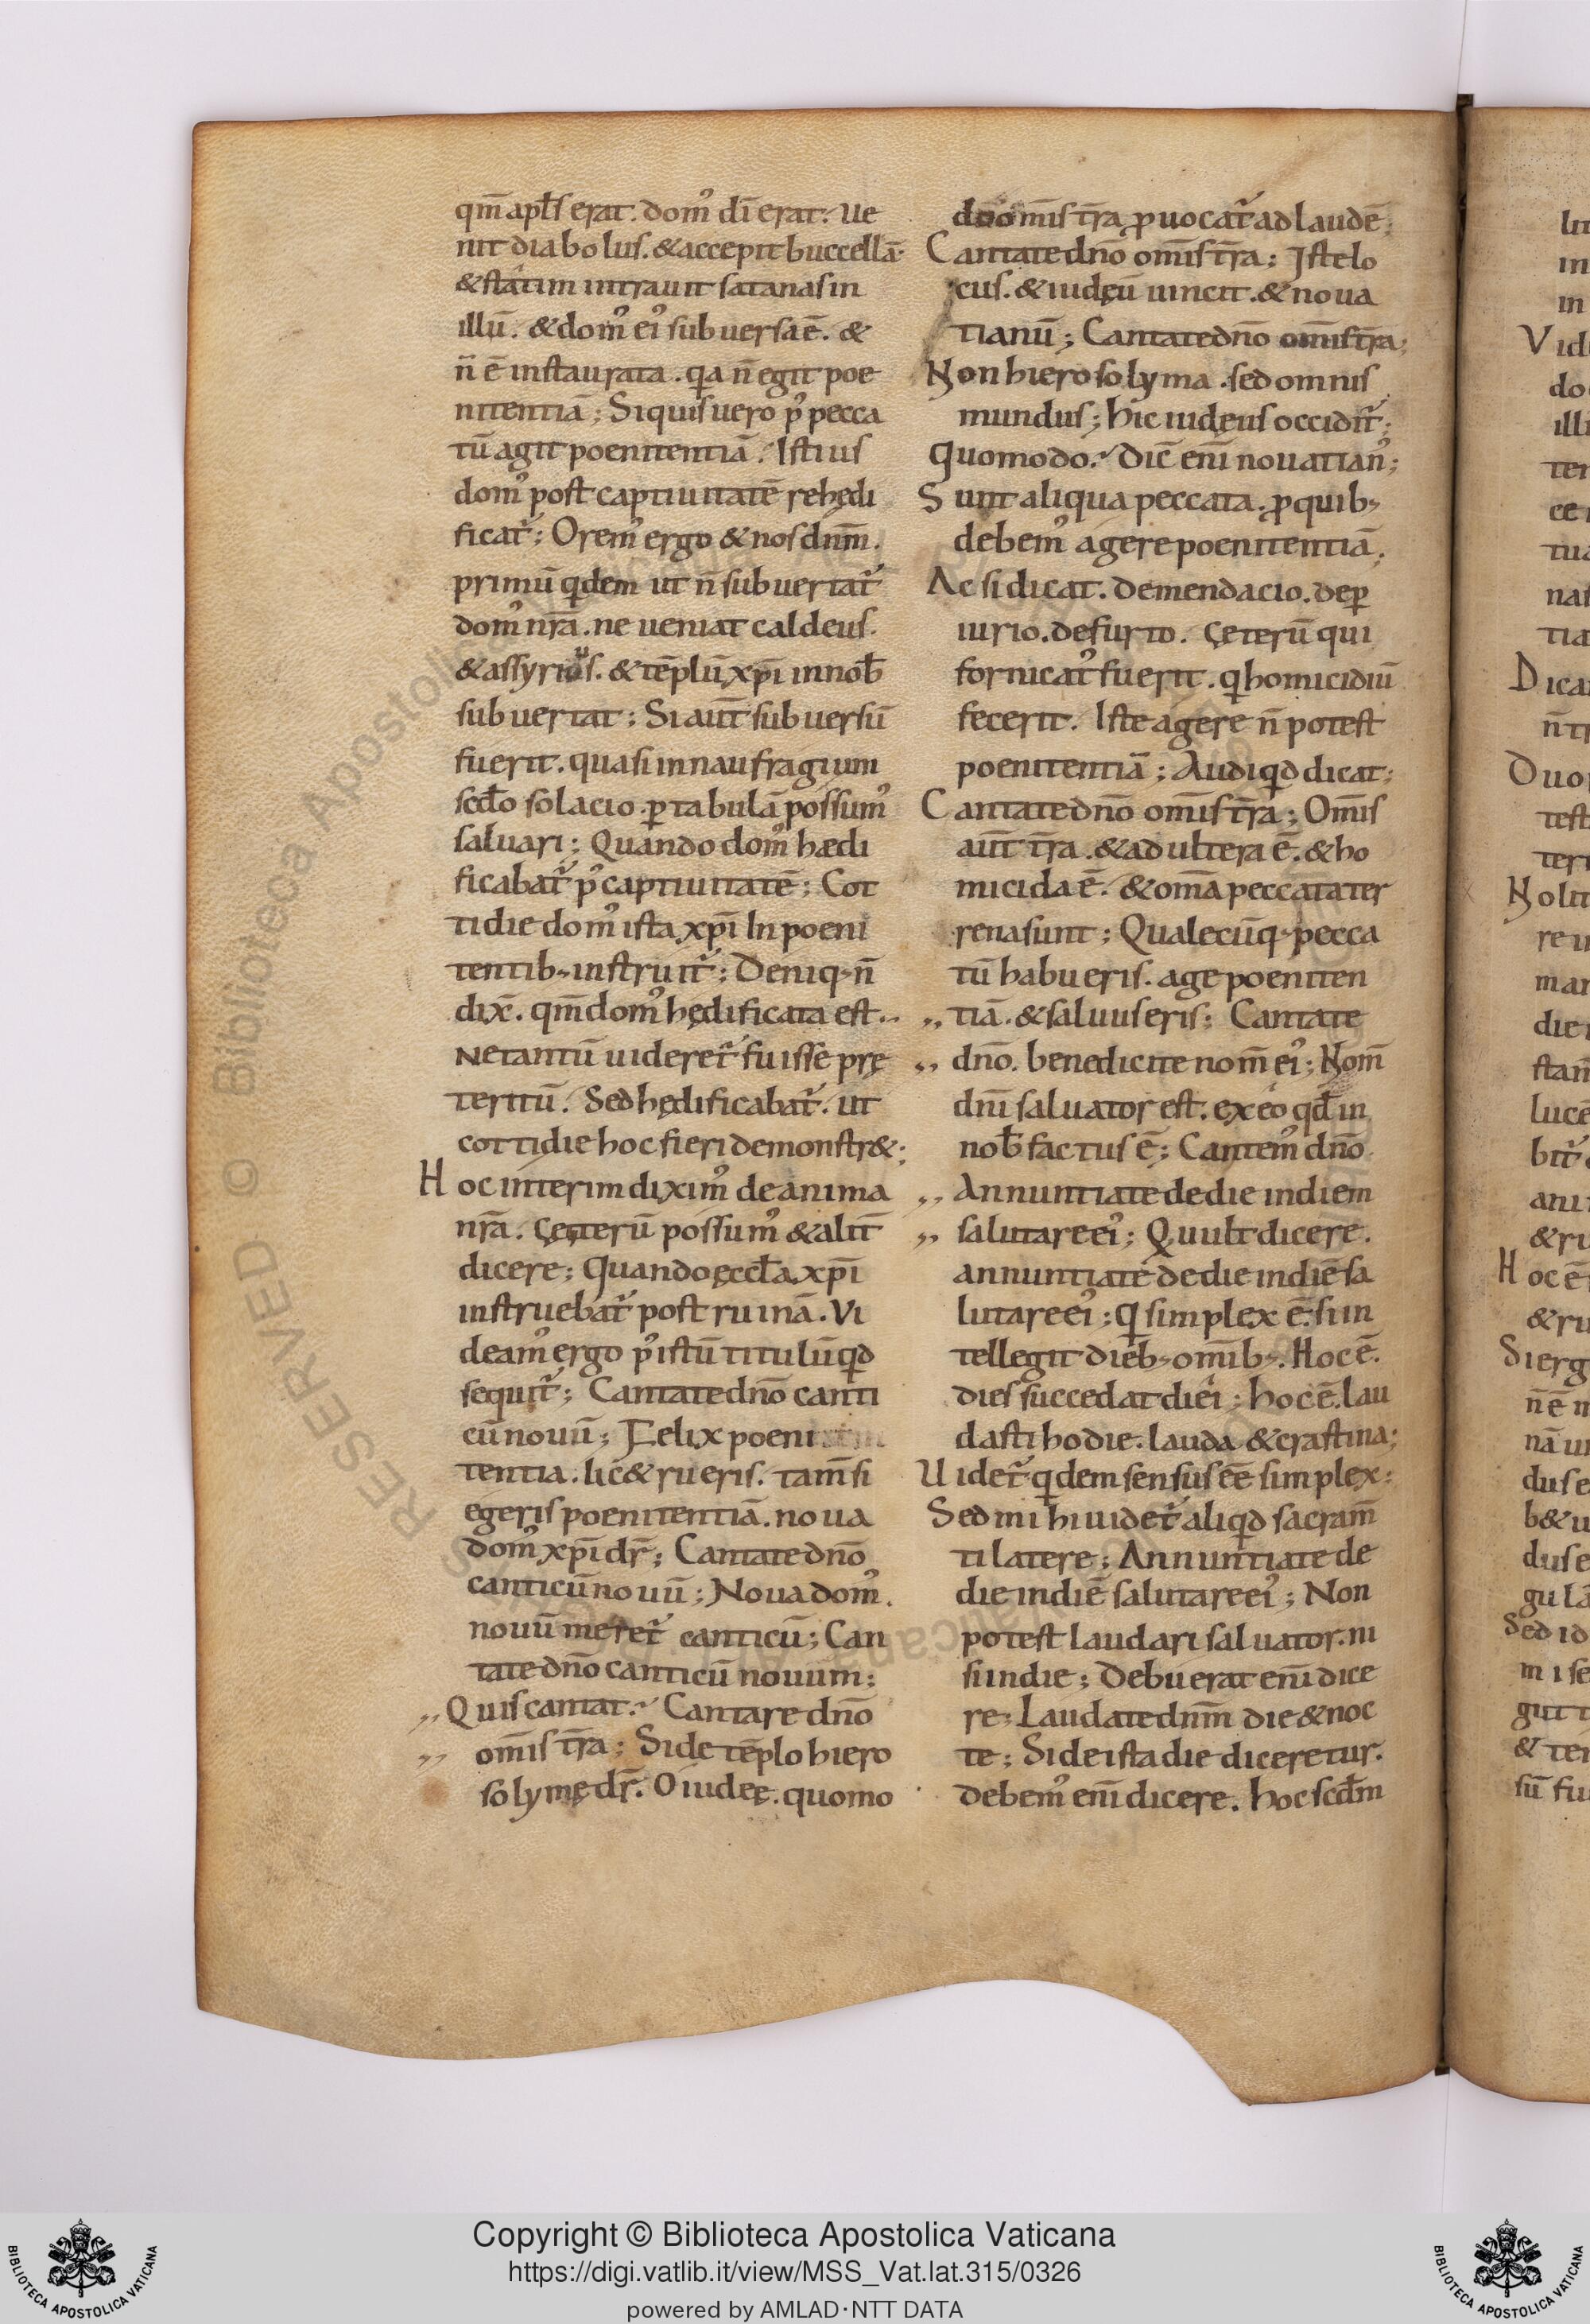 qm̄ apl̄s erat. dom᾿ dī erat. Ue
nit diabolus. & accepit buccellā.
& statim intrauit satanas in
illū. & dom᾿ ei᾿ subuersa ē. &
n̄ ē instaurata. qa n̄ egit poe
nitentiā; Siquis uero p᾿ pecca
tū agit poenitentiā. Istius
dom᾿ post captiuitatē rehędi
ficat᾿; Orem᾿ ergo & nos dnm̄.
primū qdem ut n̄ subuertat᾿
dom᾿ nr̄a. ne ueniat caldeus.
& assyrius. & tēplū xp̄i in nob̄
subuertat; Si aut̄ subuersū
fuerit. quasi in naufragium
scd̄o solacio. ꝑ tabulā possum᾿
saluari; Quando dom᾿ hædi
ficabat᾿ p᾿ captiuitatē; Cot
tidie dom᾿ ista xp̄i In poeni
tentib; instruit᾿; Deniq; n̄
dix̄. qm̄ dom᾿ hędificata est.
Ne tantū uideret᾿ fuisse prę
teritū. Sed hędificabat᾿. ut
cottidie hoc fieri demonstr&;
Hoc interim dixim᾿ de anima
nr̄a. Ceterū possum᾿ & alit̄
dicere; Quando ęccl̄a xp̄i
instruebat᾿ post ruinā. Vi
deam᾿ ergo p᾿ istū titulū qd
sequit᾿; Cantate dn̄o canti
cū nouū; Felix poeni
tentia. lic& rueris. tam̄ si
egeris poenitentiā. noua
dom᾿ xp̄i dr̄; Cantate dn̄o
canticū nouū; Noua dom᾿.
nouū meret᾿ canticū; Can
tate dn̄o canticū nouum;
,, Quis cantat. Cantare dn̄o
,, om̄is tr̄a; Si de tēplo hiero
solymę dr̄. O iudeę. quomo
do om̄is tr̄a ꝓuocat᾿ ad laudē;
Cantate dn̄o om̄is tr̄a; Iste lo
cus. & iudęū uincit. & noua
tianū; Cantate dn̄o om̄is tr̄a;
Non hierosolyma. sed omnis
mundus; hic iudęus occidit᾿;
Quomodo. Dic̄ enī nouatian᾿;
Sunt aliqua peccata. ꝓ quib;
debem᾿ agere poenitentiā;
Ac si dicat. de mendacio. de ꝑ
iurio. de furto. Ceterū qui
fornicat᾿ fuerit. q homicidiū
fecerit. Iste agere n̄ potest
poenitentiā; Audi qd dicat;
Cantate dn̄o om̄is tr̄a; Om̄is
aut̄ tr̄a. & adultera ē. & ho
micida ē. & om̄a peccata ter
rena sunt; Qualecūq; pecca
tū habueris. age poeniten
,, tiā. & saluus eris; Cantate
,, dn̄o. benedicite nom̄ ei᾿; Nom̄
dn̄i saluator est. ex eo qd̄ in
nob̄ factus ē; Cantem᾿ dn̄o.
,, Annuntiate de die in diem
,, salutare ei᾿; Q uult dicere.
annuntiate de die in diē sa
lutare ei᾿; q simplex ē. si in
tellegit dieb; om̄ib;. Hoc ē.
dies succedat diei; hoc ē. lau
dasti hodie. lauda & crastina;
Uidet᾿ qdem sensus eē simplex;
Sed mihi uidet᾿ aliqd sacram̄
ti latere; Annuntiate de
die in diē salutare ei᾿; Non
potest laudari saluator. ni
si in die; Debuerat enī dice
re; Laudate dnm̄ die & noc
te; Si de ista die diceretur.
debem᾿ enī dicere. hoc scd̄m
RESERVED © Biblioteca Apostolica Vaticana
Copyright © Biblioteca Apostolica Vaticana
https://digi.vatlib.it/view/MSS_Vat.lat.315/0326
powered by AMLAD·NTT DATA
BIBLIOTECA APOSTOLICA VATICANA
BIBLIOTECA APOSTOLICA VATICANA